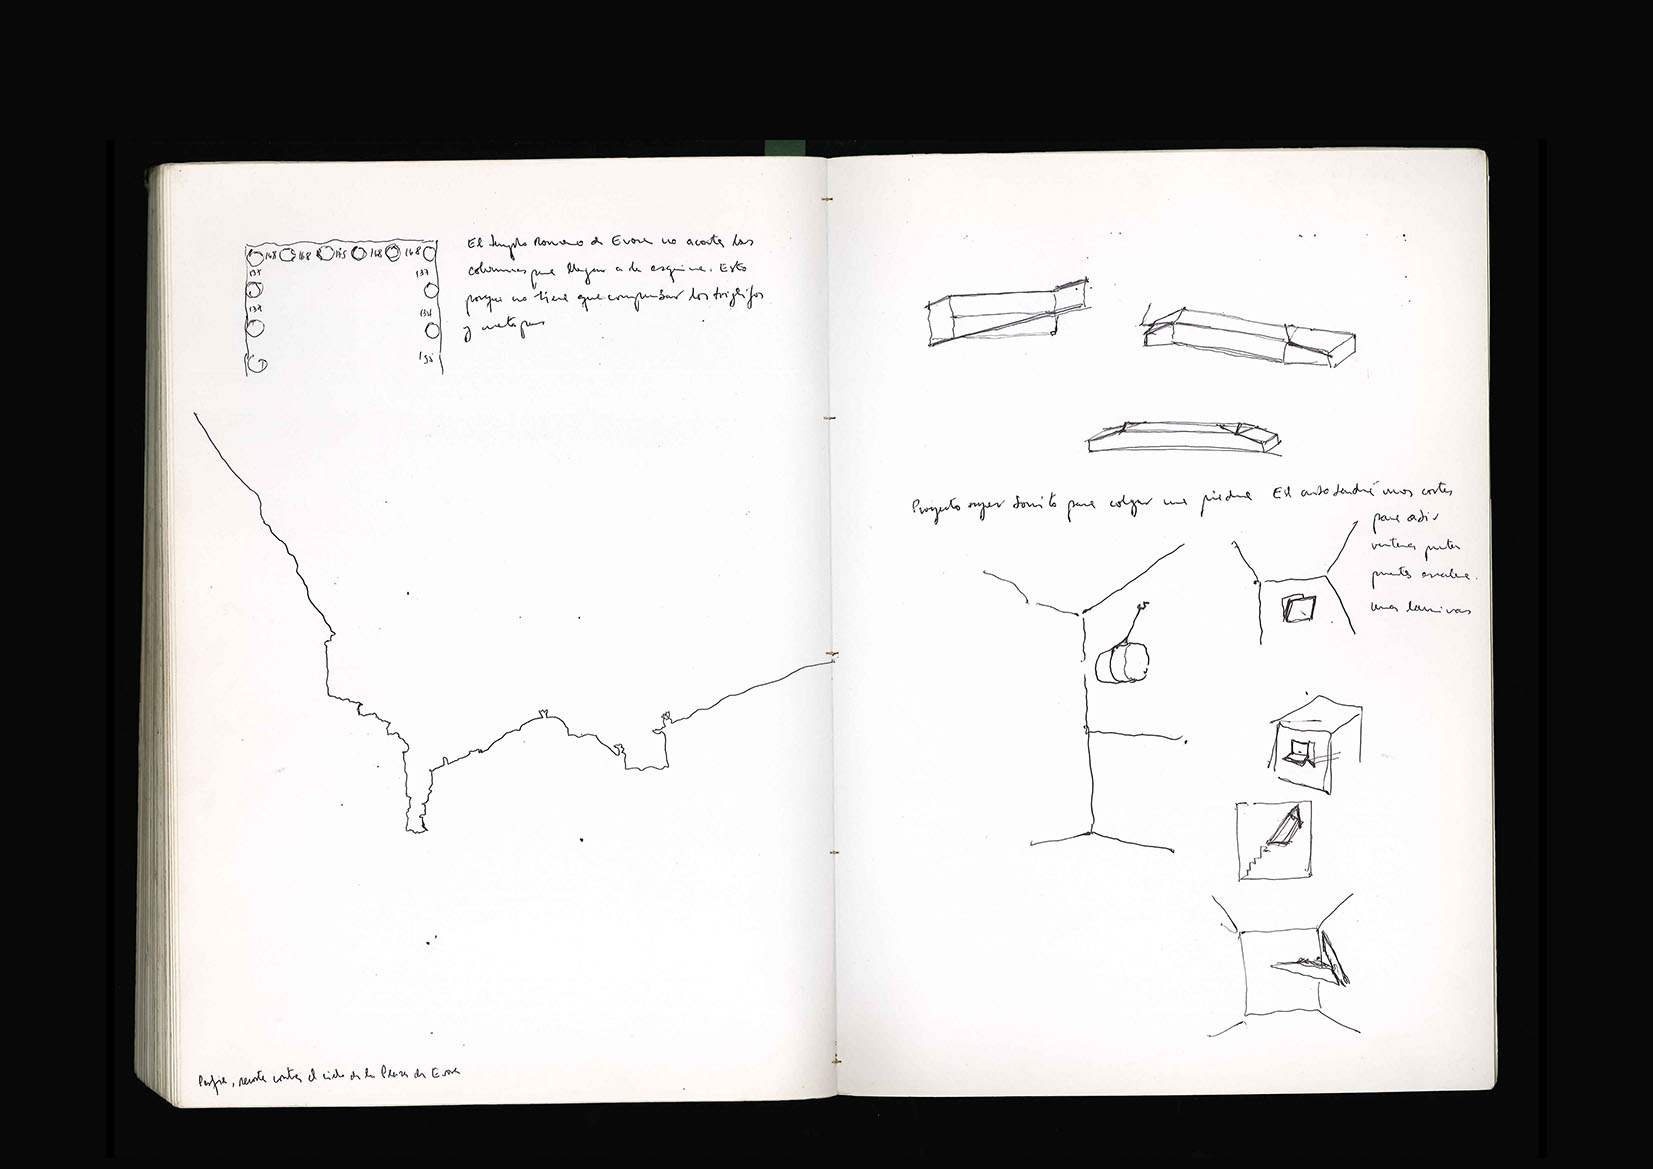 168 168 165 168 168
El templo Romano de Evora no acorta las
columnas que llegan a la esquina. Esto
porque no tiene que compensar los triglifos
y metopas
137
137
138
Perfil, recorte contra el cielo de la Plaza de Evora
Proyecto super bonito para colgar una piedra
El cubo tendrá unos cortes
para abrir
ventanas puertas
puertas escalera.
unas laminas